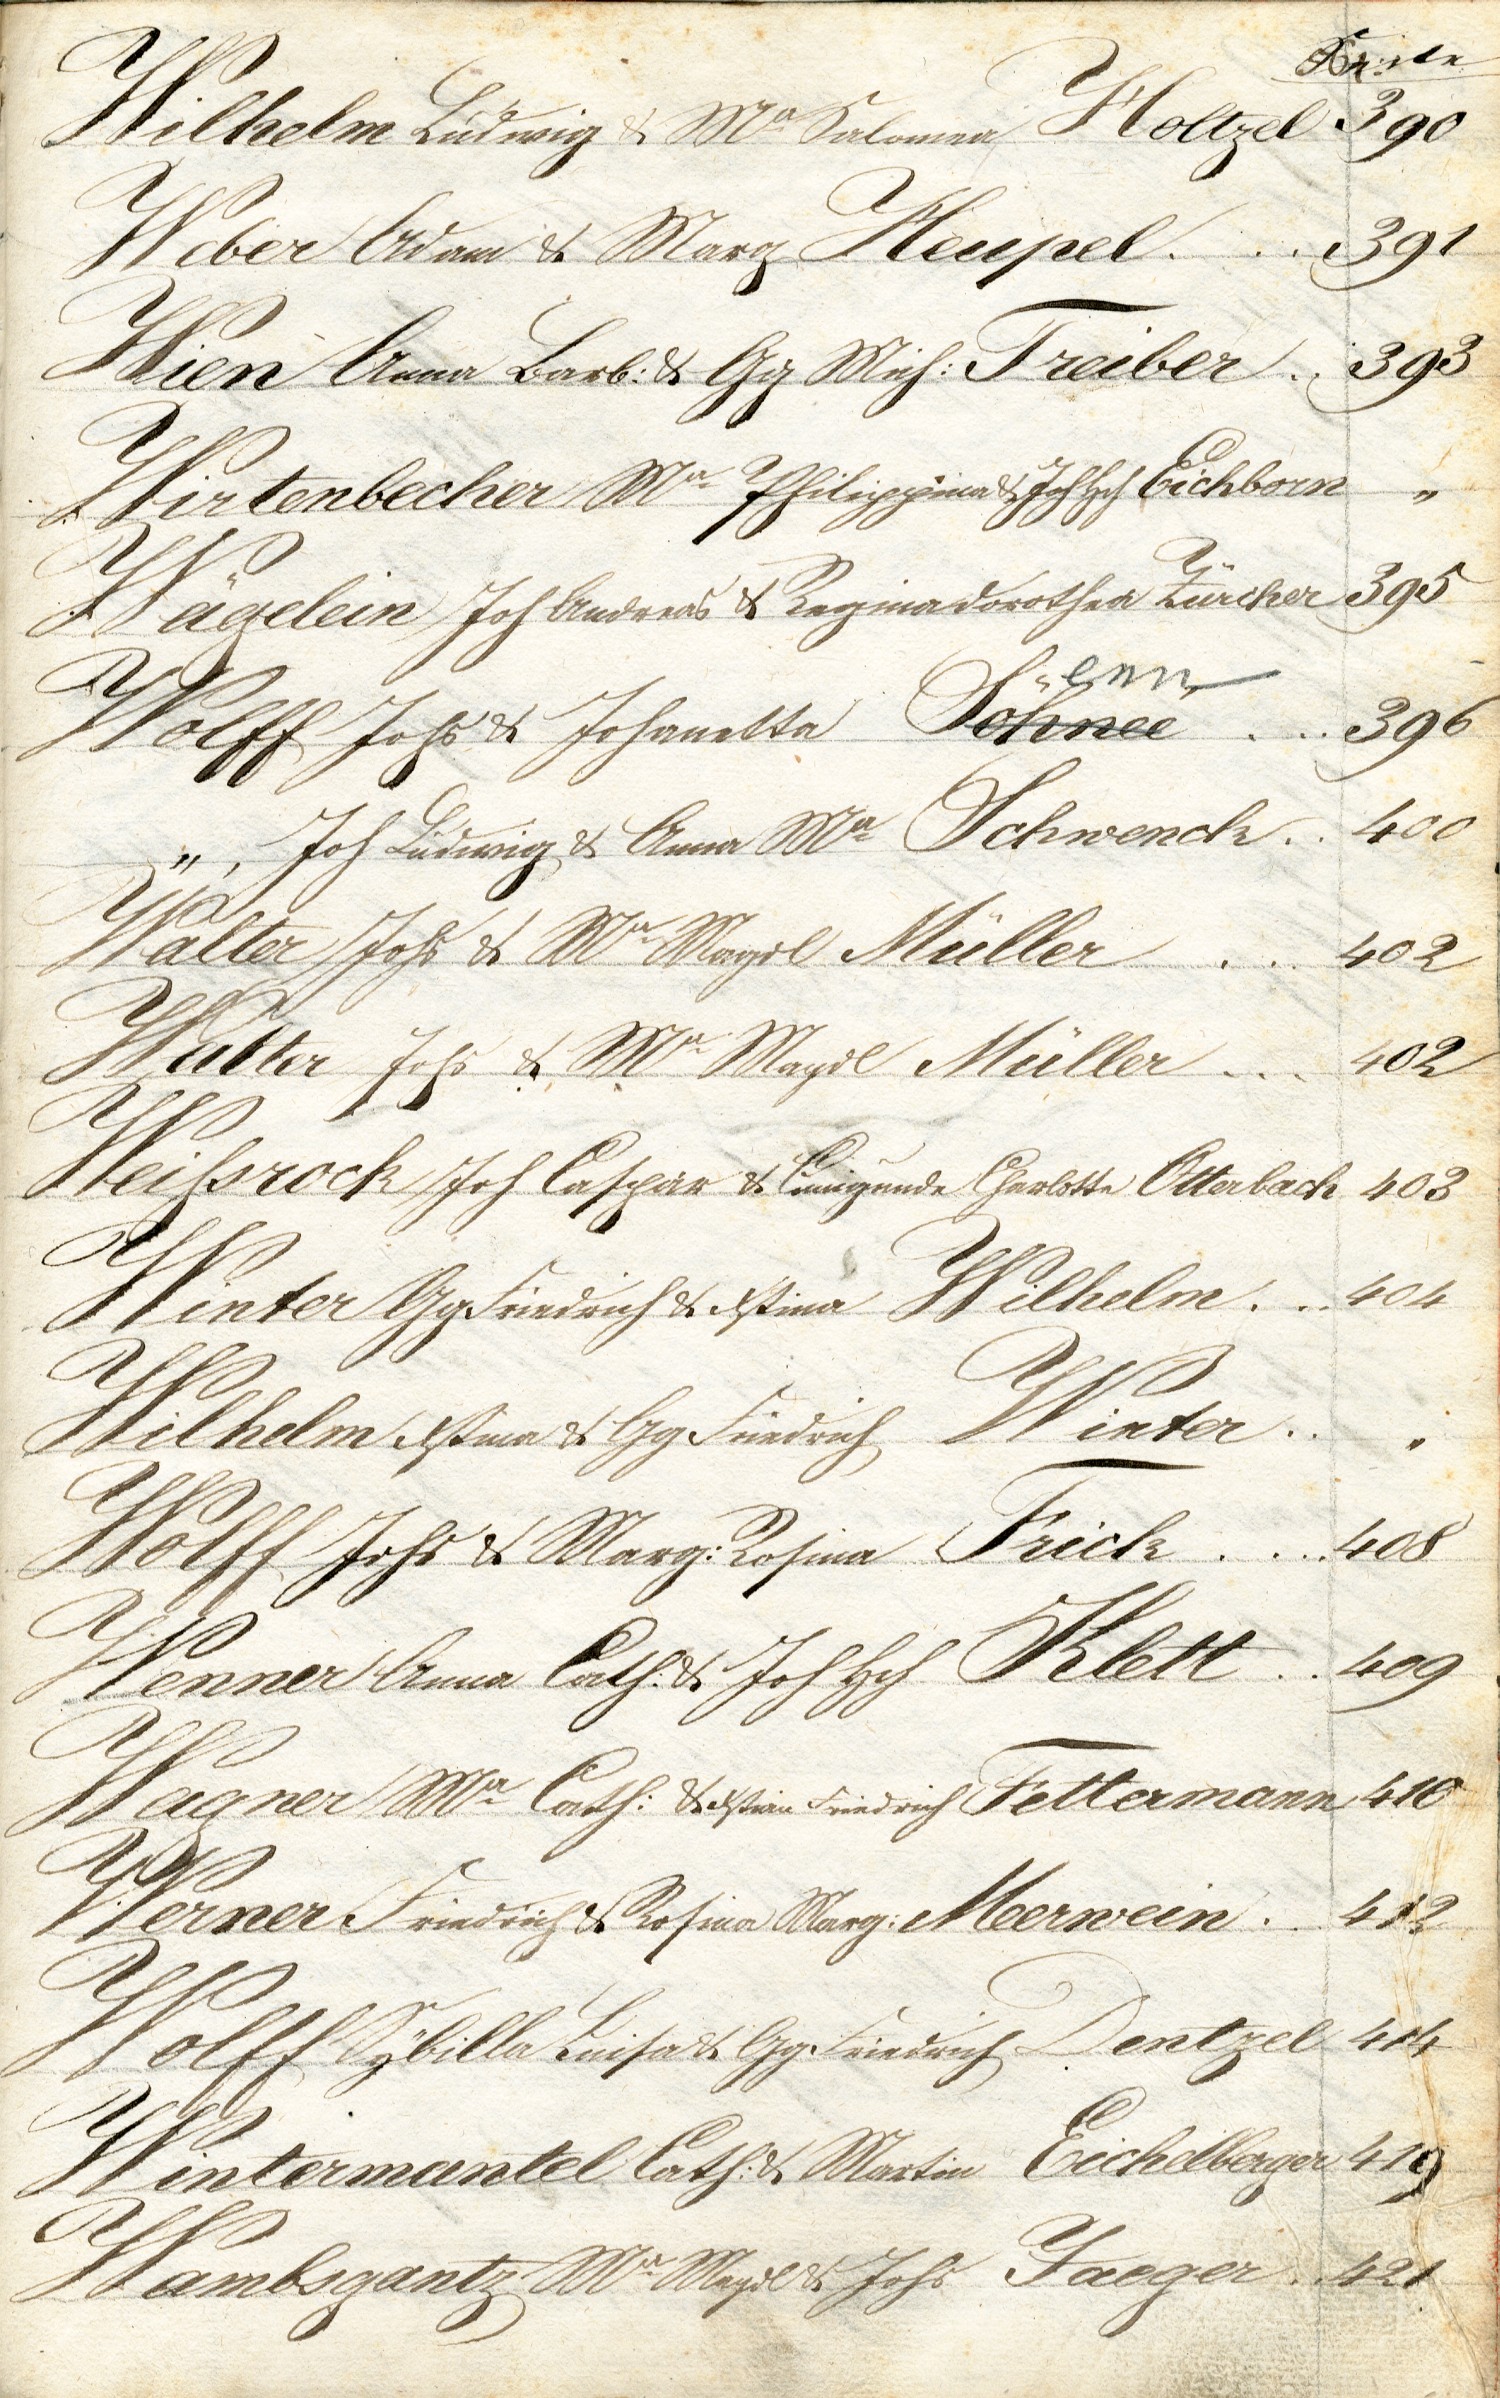 Seite
Wilhelm Ludwig & Ma Salomea Holtzel 390
Weber Adam & Marg Heupel . . . 391
Wien Anna Barb: & Gg Mich: Treiber . . 393
Wirtenbecher Ma Philippina & Joh Hch Eichborn "
Wägelein Joh Andreas & Regina Dorothea Zürcher 395
Wolff Johs & Johanetta Söhnee . . . 396
" , Joh Ludwig & Anna Ma Schwenck . . 400
Walter Johs & Ma Magdl Müller . . . 402
Walter Johs & Ma Magdl Müller . . . 402
Weisrock Joh Caspar & Cunigunde Charlotte Otterbach 403
Winter Gg Friedrich & Xstina Wilhelm . . . 404
Wilhelm Xstina & Gg Friedrich Winter . . "
Wolff Johs & Marg: Rosina Frick . . . . 408
Wenner Anna Cath: & Joh Hch Klett . . 409
Wagner Ma Cath: & Xstian Friedrich Fettermann 410
Werner Friedrich & Rosina Marg: Merwein . . 412
Wolff Sÿbilla Luisa & Gg Friedrich Dentzel 414
Wintermantel Cath: & Martin Eichelberger 419
Wambsgantz Ma Magdl & Johs Jaeger . 421